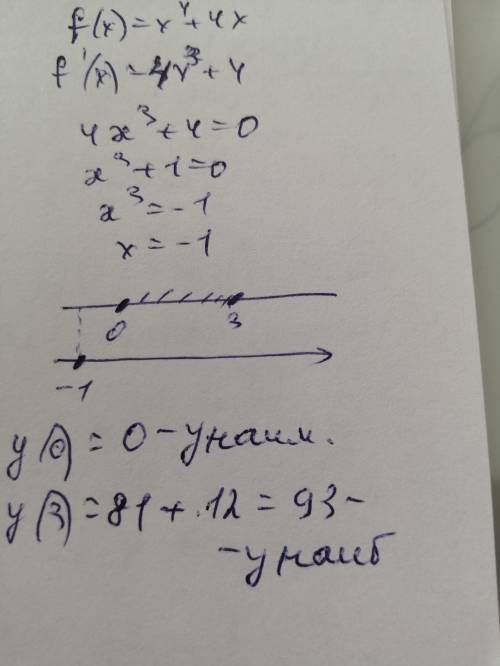 f(x)=x⁴+4x
f'(x)=4x³+4
4x³+4=0
x³+1=0
x³=-1
x=-1
0 3
-1
y(0)=0-yнаим.
y(3)=81+12=93-
-yнаиб